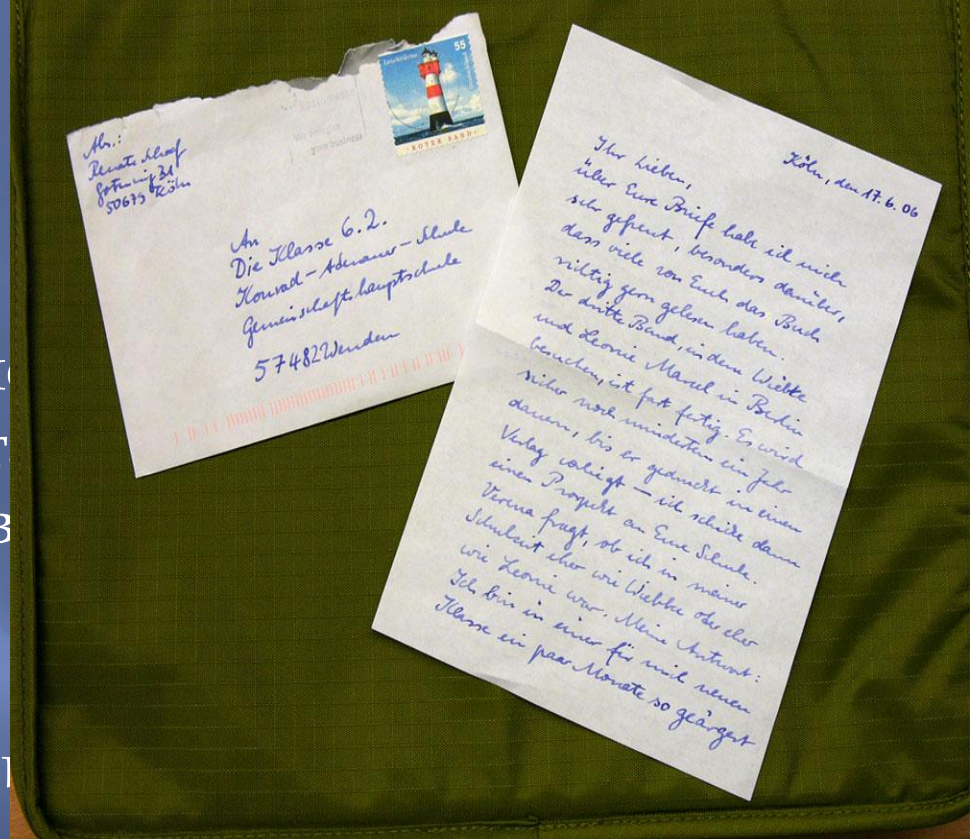 Abs.:
Renate Schoof
50679 Köln
55
Leuchttürme
ROTER SAND
your business
An
Die Klasse 6.2.
Konrad-Adenauer-Schule
Gemeinschaftshauptschule
57482 Wenden
Köln, den 17.6.06
Ihr Lieben,
über Eure Briefe habe ich mich
sehr gefreut, besonders darüber,
dass viele von Euch das Buch
richtig gern gelesen haben.
Der dritte Band, in dem Wiebke
und Leonie Marcel in Berlin
besuchen, ist fast fertig. Es wird
sicher noch mindestens ein Jahr
dauern, bis er gedruckt in einem
Verlag vorliegt – ich schicke dann
einen Prospekt an Eure Schule.
Verena fragt, ob ich in meiner
Schulzeit eher wie Wiebke oder eher
wie Leonie war. Meine Antwort:
Ich bin in einer für mich neuen
Klasse ein paar Monate so geärgert